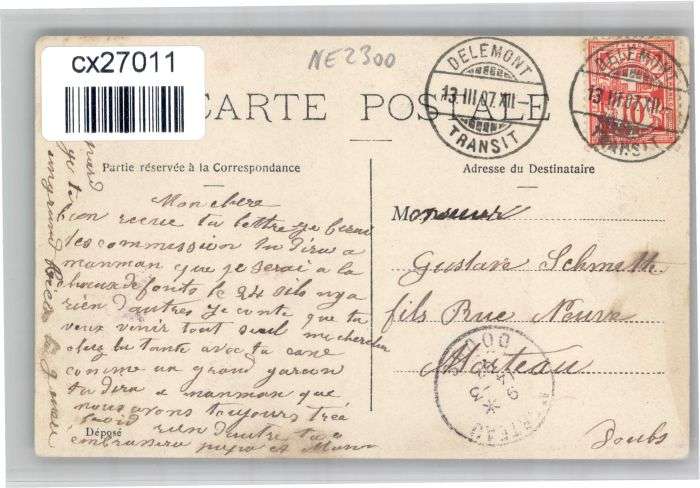 cx27011
NE2300
CARTE POSTALE
DELEMONT
13.III.07.XII-
TRANSIT
DELEMONT
13.III.07.XII-
TRANSIT
10
Partie réservée à la Correspondance
Adresse du Destinataire
Mon chere
bien recue ta lettre je ferai
tes commission tu dira a
manman que je serai a la
chaux de fonts le 24 sils nya
rien dautres je conte que tu
veux venir tout seul me chercher
chez ta tante avec ta cane
comme un grand garcon
tu dira a manman que
nous avons toujours tres
froid rien dautre tu
embrassera papa et Man
Monsieur
Gustave Schmitt
fils Rue Neuve
Morteau
Doubs
MORTEAU
DOUBS
Déposé